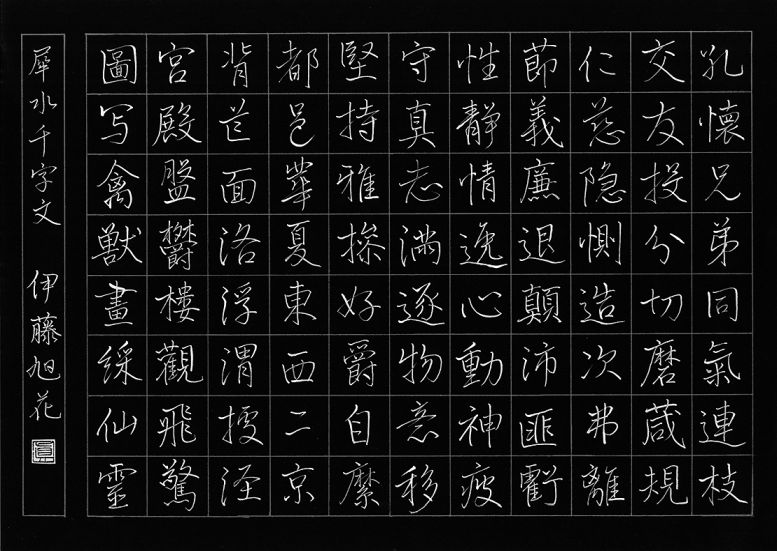 孔懐兄弟同氣連枝
交友投分切磨葴規
仁慈隐惻造次弗離
節義廉退顛沛匪虧
性靜情逸心動神疲
守真志満逐物意移
堅持雅操好爵自縻
都邑華夏東西二京
背芒面洛浮渭據涇
宮殿盤欝樓觀飛驚
圖写禽獣畫綵仙靈
犀水千字文 伊藤旭花